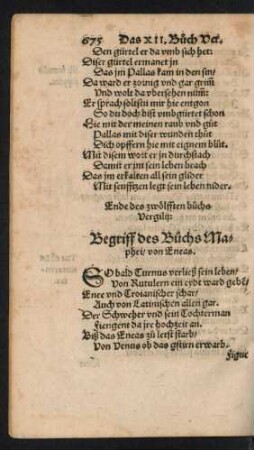 675 Das XII. Bůch Ver.
Den gürtel er da vmb sich het:
Diser gürtel ermanet jn
Das jm Pallas kam in den sin/
Da ward er zoinig vnd gar grim̃
Vnd wolt da vbersehen nim̃:
Er sprach soltstu mir hie entgon
So du doch bist vmbgürtet schon
Hie mit der meinen raub vnd gůt
Pallas mit diser wunden thůt
Dich opffern hie mit eignem blůt.
Mit disem wort er jn durchstach
Damit er jm sein leben brach
Das jm erkalten all sein glider
Mit senfftzen legt sein leben nider.
Ende des zwölfften bůchs
Vergilij:
Begriff des Bůchs Ma-
phei/ von Eneas.
SO bald Turnus verließ sein leben/
Von Rutulern ein eydt ward gebē/
Enee vnd Troianischer schar/
Auch von Latinischen allen gar.
Der Schweher vnd sein Tochterman
Fiengent da jre hochzeit an.
Biß das Eneas zů letst starb/
Von Venus ob das gstirn erwarb.
Figur